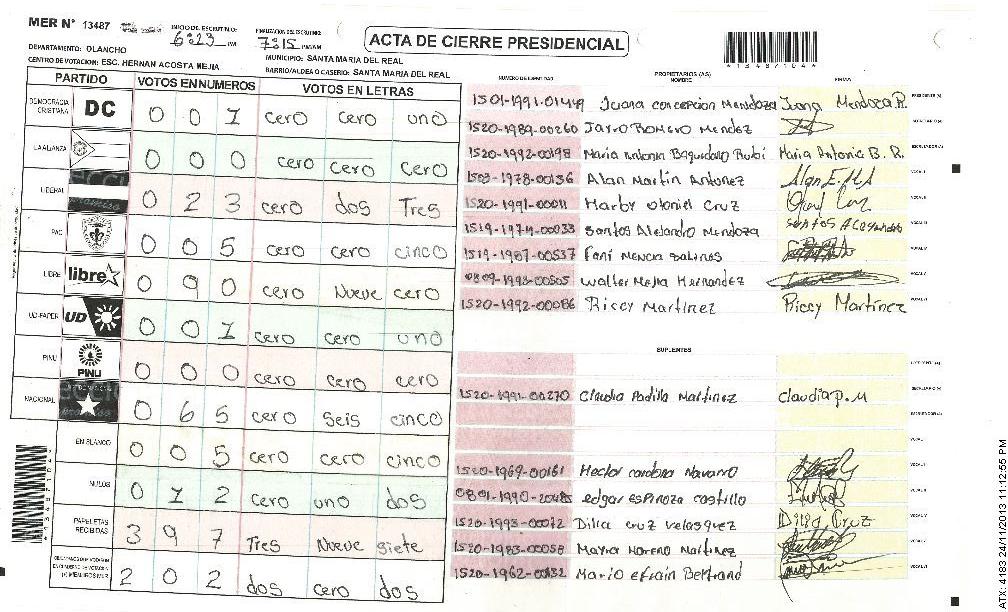 MER N° 13487
INICIO DE ESCRUTINIO: 6:23 PM
FINALIZACION DEL ESCRUTINIO: 7:15 PM/AM
ACTA DE CIERRE PRESIDENCIAL
*134871044*
DEPARTAMENTO: OLANCHO
MUNICIPIO: SANTA MARIA DEL REAL
CENTRO DE VOTACION: ESC. HERNAN ACOSTA MEJIA
BARRIO/ALDEA O CASERIO: SANTA MARIA DEL REAL
PARTIDO VOTOS EN NUMEROS VOTOS EN LETRAS
DEMOCRACIA CRISTIANA DC 0 0 1 cero cero uno
LA ALIANZA 0 0 0 cero cero cero
LIBERAL 0 2 3 cero dos Tres
PAC 0 0 5 cero cero cinco
LIBRE libre 0 9 0 cero Nueve cero
UD-FAPER UD 0 0 1 cero cero uno
PINU PINU 0 0 0 cero cero cero
NACIONAL 0 6 5 cero seis cinco
EN BLANCO 0 0 5 cero cero cinco
NULOS 0 1 2 cero uno dos
PAPELETAS RECIBIDAS 3 9 7 Tres Nueve siete
2 0 2 dos cero dos
NUMERO DE IDENTIDAD PROPIETARIOS (AS) NOMBRE FIRMA
Juana concepcion Mendoza Juana Mendoza R. PRESIDENTE (A)
1520-1989-00260 Jarro Romero Mendez SECRETARIO (A)
1520-1992-00198 Maria Antonia Baquedano Rubi Maria Antonia B. R. ESCRUTADOR (A)
1503-1978-00136 Alan Martin Antonez VOCAL I
1520-1991-00011 Marby otoniel Cruz VOCAL II
1519-1974-00033 Santos Alejandro Mendoza VOCAL III
1519-1987-00537 Fani Mencia Salinas VOCAL IV
Walter Mejia Hernandez VOCAL V
1520-1992-00086 Riccy Martinez Riccy Martinez VOCAL VI
SUPLENTES
PRESIDENTE (A)
1520-1991-00270 Claudia Padilla Martinez claudia p. M SECRETARIO (A)
ESCRUTADOR (A)
VOCAL I
1520-1969-00161 Hector cardona Navarro VOCAL II
0801-1990-20485 edgar espinoza castillo VOCAL III
1520-1993-00072 Dilia cruz velasquez Dilia Cruz VOCAL IV
1520-1983-00058 Maria Moreno Martinez VOCAL V
1520-1962-00132 Mario efrain Bertrand VOCAL VI
ATX: 4183 24/11/2013 11:12:55 PM